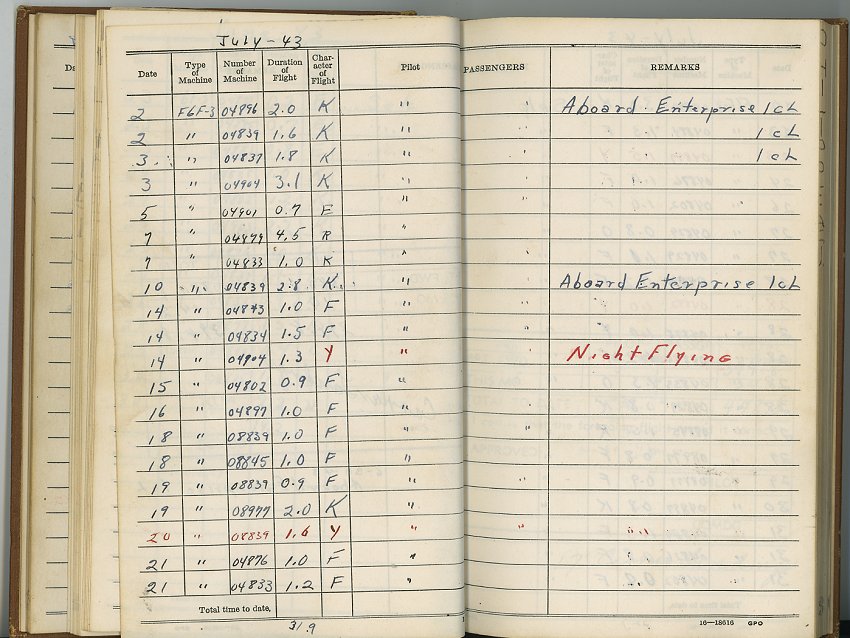 July - 43
Date Type of Machine Number of Machine Duration of Flight Character of Flight Pilot PASSENGERS REMARKS
2 F6F-3 04896 2.0 K " " Aboard Enterprise 1 cL
2 " 04839 1.6 K " " 1 cL
3 " 04837 1.8 K " " 1 cL
3 " 04904 3.1 K " "
5 " 04901 0.7 E " "
7 " 04879 4.5 R "
7 " 04833 1.0 K " "
10 " 04839 2.8 K " " Aboard Enterprise 1 cL
14 " 04843 1.0 F " "
14 " 04834 1.5 F " "
14 " 04904 1.3 Y " " Night Flying
15 " 04802 0.9 F "
16 " 04897 1.0 F " "
18 " 08839 1.0 F " "
18 " 08845 1.0 F "
19 " 08839 0.9 F "
19 " 08977 2.0 K "
20 " 08839 1.6 Y " " "
21 " 04876 1.0 F "
21 " 04833 1.2 F "
Total time to date,
31.9
16—18616 GPO